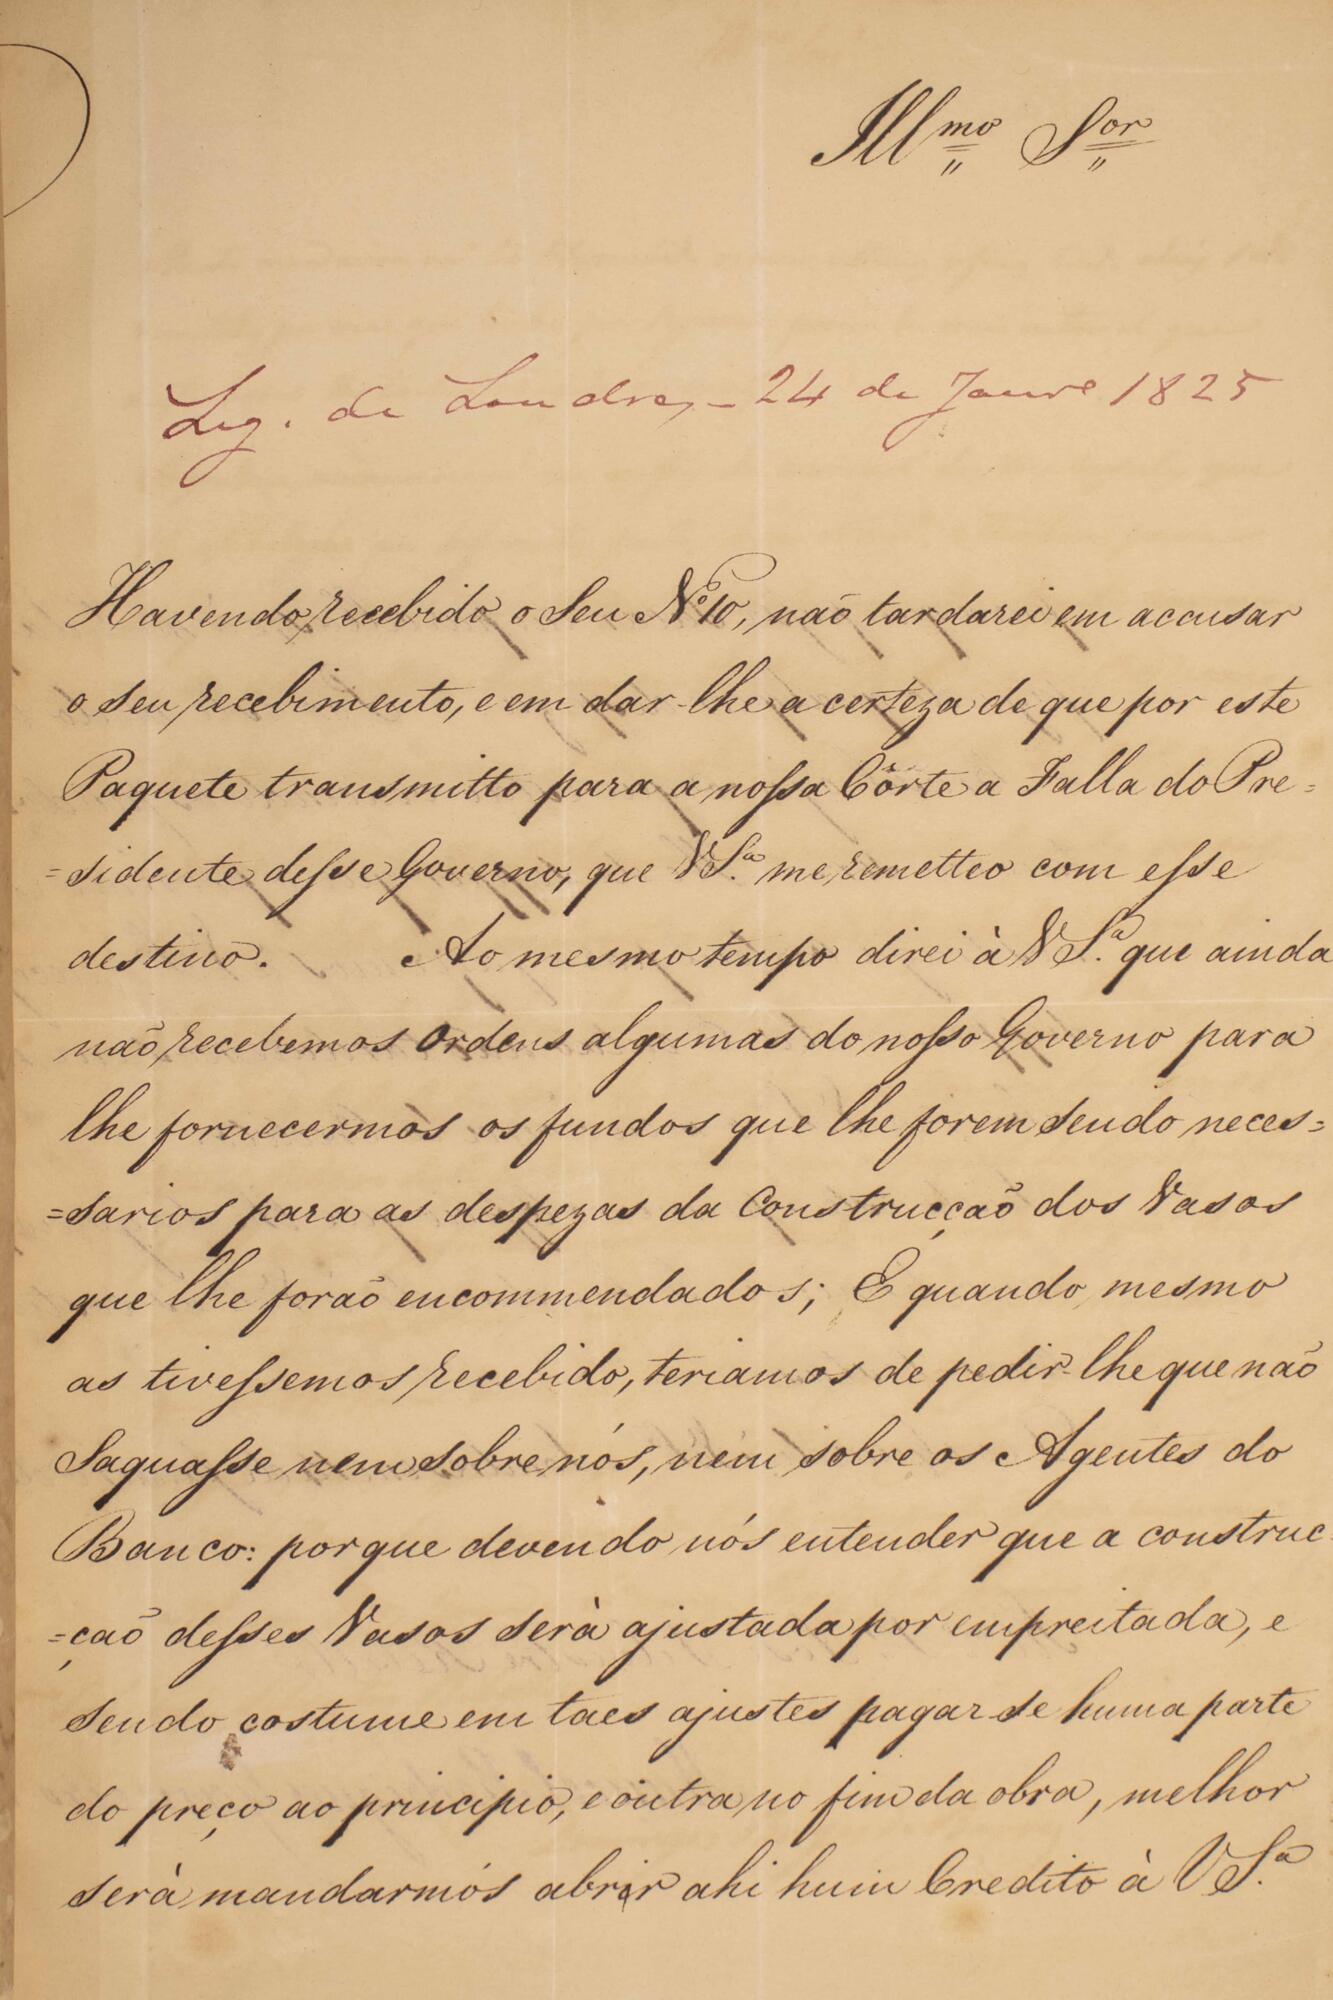 Illmo Sor
Leg. de Londres - 24 de Janro 1825
Havendo recebido o seu No 10, não tardarei em accusar
o seu recebimento, e em dar-lhe a certeza de que por este
Paquete transmitto para a nossa Côrte a Falla do Pre=
=sidente desse Governo, que VSa. me remetteo com esse
destino. Ao mesmo tempo direi à VSa. que ainda
não recebemos Ordens algumas do nosso Governo para
lhe fornecermos os fundos que lhe forem sendo neces=
=sarios para as despezas da Construcção dos Vasos
que lhe forão encommendados; E quando mesmo
as tivessemos recebido, teriamos de pedir-lhe que não
Saquasse nem sobre nós, nem sobre os Agentes do
Banco: porque devendo nós entender que a construc
=ção desses Vasos serà ajustada por empreitada, e
sendo costume em taes ajustes pagar-se huma parte
do preço ao principio, e outra no fim da obra, melhor
serà mandarmós abrir ahi hum Credito à VSa.